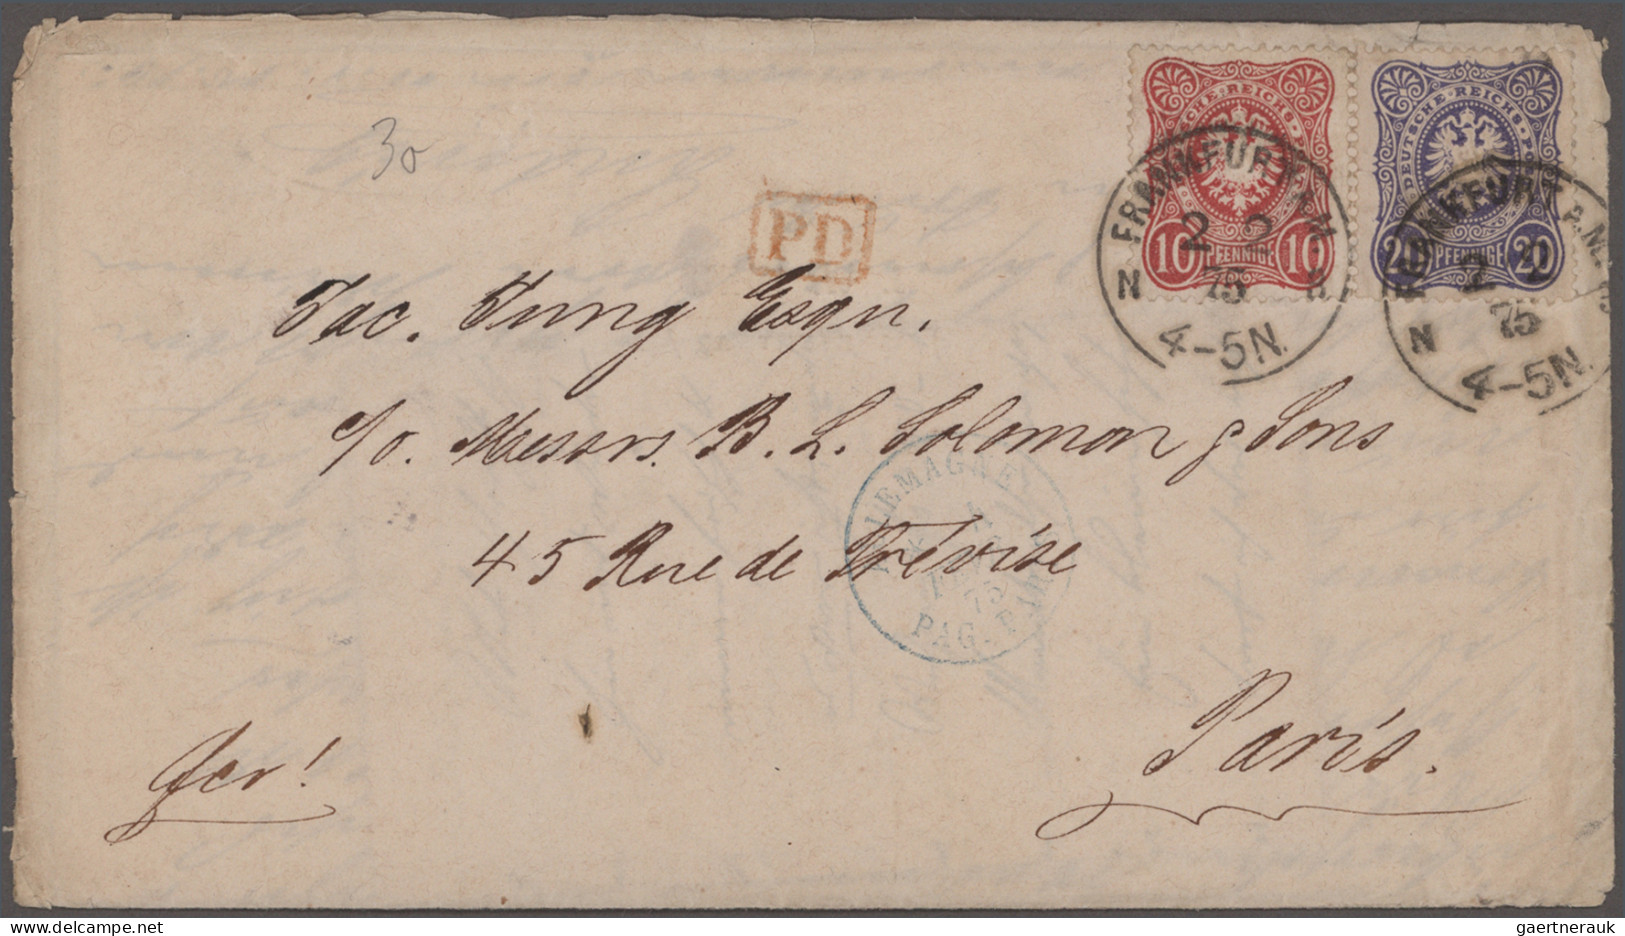 30
PD
DEUTSCHE REICHS
10 PFENNIGE 10
20 PFENNIGE 20
FRANKFURT A.M.
N
2
75
4-5N.
FRANKFURT A.M.
N
2 2
75
4-5N.
Jac. Jung Esqu.
c/o. Messrs. B. L. Solomon & Sons
45 Rue de Trévise
ALLEMAGNE
75
PAG. PARIS
Paris.
gaertnerauk